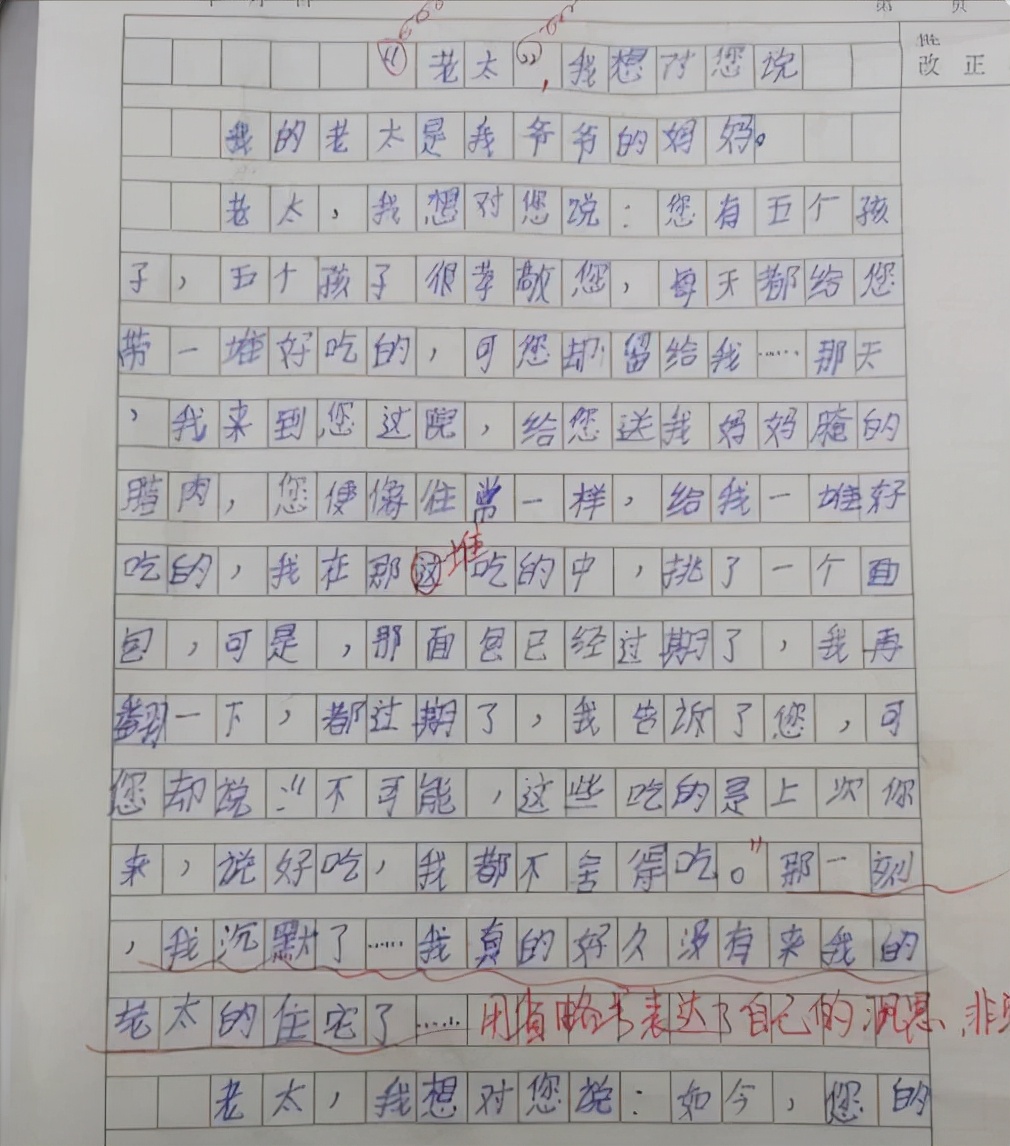 “老太”，我想对您说
批
改 正
我的老太是我爷爷的妈妈。
老太，我想对您说：您有五个孩
子，五个孩子很孝敬您，每天都给您
带一堆好吃的，可您却留给我……那天
，我来到您这院，给您送我妈妈腌的
腊肉，您便像往常一样，给我一堆好
吃的，我在那这吃的中，挑了一个面
堆
包，可是，那面包已经过期了，我再
翻一下，都过期了，我告诉了您，可
您却说：“不可能，这些吃的是上次你
来，说好吃，我都不舍得吃。”那一刻
，我沉默了……我真的好久没有来我的
老太的住宅了……
用省略号表达了自己的沉思，非
老太，我想对您说：如今，您的